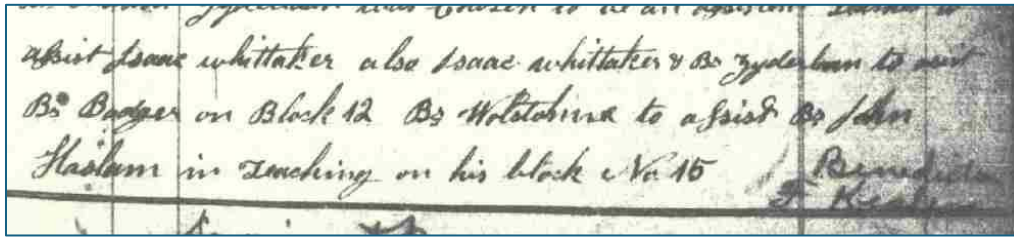 was Chosen to be an
assist Isaac whittaker also Isaac whittaker & Br Zyderlaan to asist
Br Badger on Block 12 Br Wolstohme to assist Br John
Haslam in Teaching on his block No 15 Benediction
F